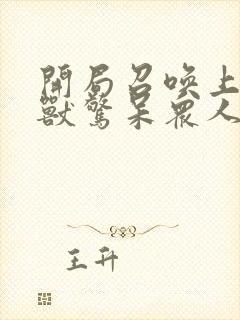 開局召喚上
獸驚呆眾人
王升